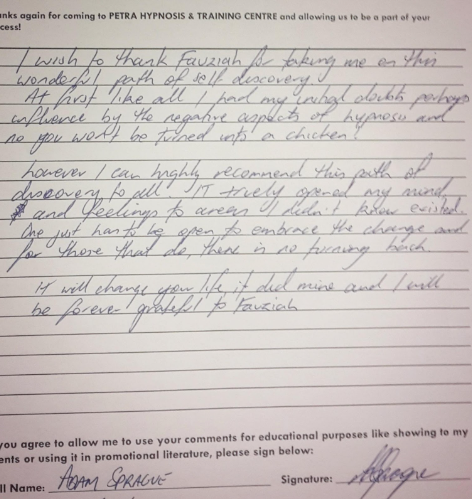 anks again for coming to PETRA HYPNOSIS & TRAINING CENTRE and allowing us to be a part of your
cess!
I wish to thank Fauziah for taking me on this
wonderful path of self discovery
At first like all I had my initial doubts perhaps
influence by the negative aspects of hypnosis and
no you won't be turned into a chicken!
however I can highly recommend this path of
discovery to all. IT truely opened my mind
and feelings to areas I didn't know existed.
One just has to be open to embrace the change and
for those that do, there is no turning back.
It will change your life, it did mine and I will
be forever grateful to Fauziah
you agree to allow me to use your comments for educational purposes like showing to my
ents or using it in promotional literature, please sign below:
ll Name: ADAM SPRAGUE Signature: